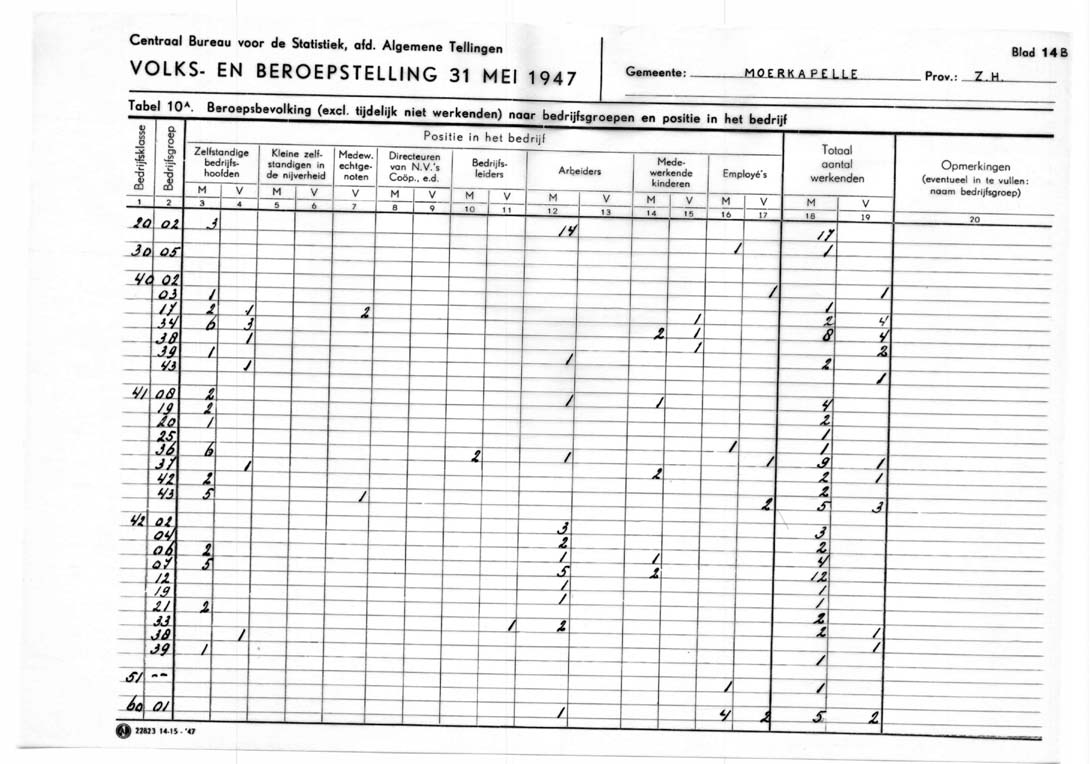 Centraal Bureau voor de Statistiek, afd. Algemene Tellingen
VOLKS- EN BEROEPSTELLING 31 MEI 1947
Gemeente: MOERKAPELLE Prov.: Z.H.
Blad 14B
Tabel 10A. Beroepsbevolking (excl. tijdelijk niet werkenden) naar bedrijfsgroepen en positie in het bedrijf
Bedrijfsklasse Bedrijfsgroep Positie in het bedrijf Totaal aantal werkenden Opmerkingen (eventueel in te vullen: naam bedrijfsgroep)
Zelfstandige bedrijfs-hoofden Kleine zelf-standigen in de nijverheid Medew. echtge-noten Directeuren van N.V.'s Coöp., e.d. Bedrijfs-leiders Arbeiders Mede-werkende kinderen Employé's
M V M V V M V M V M V M V M V M V
1 2 3 4 5 6 7 8 9 10 11 12 13 14 15 16 17 18 19 20
20 02 3 14 17
30 05 1 1
40 02 1 1
03 1 1
17 2 1 2 1 2 4
34 6 3 2 1 8 4
38 1 1 2
39 1 1 2
43 1 1
41 08 2 1 1 4
19 2 2
20 1 1
25 1 1
36 6 2 1 1 9 1
37 1 2 2 1
42 2 2
43 5 1 2 5 3
42 02 3 3
04 2 2
06 2 1 1 4
07 5 5 2 12
12 1 1
19 1 1
21 2 2
33 1 2 2 1
38 1 1
39 1 1
51 -- 1 1
60 01 1 4 2 5 2
22823 14-15-'47